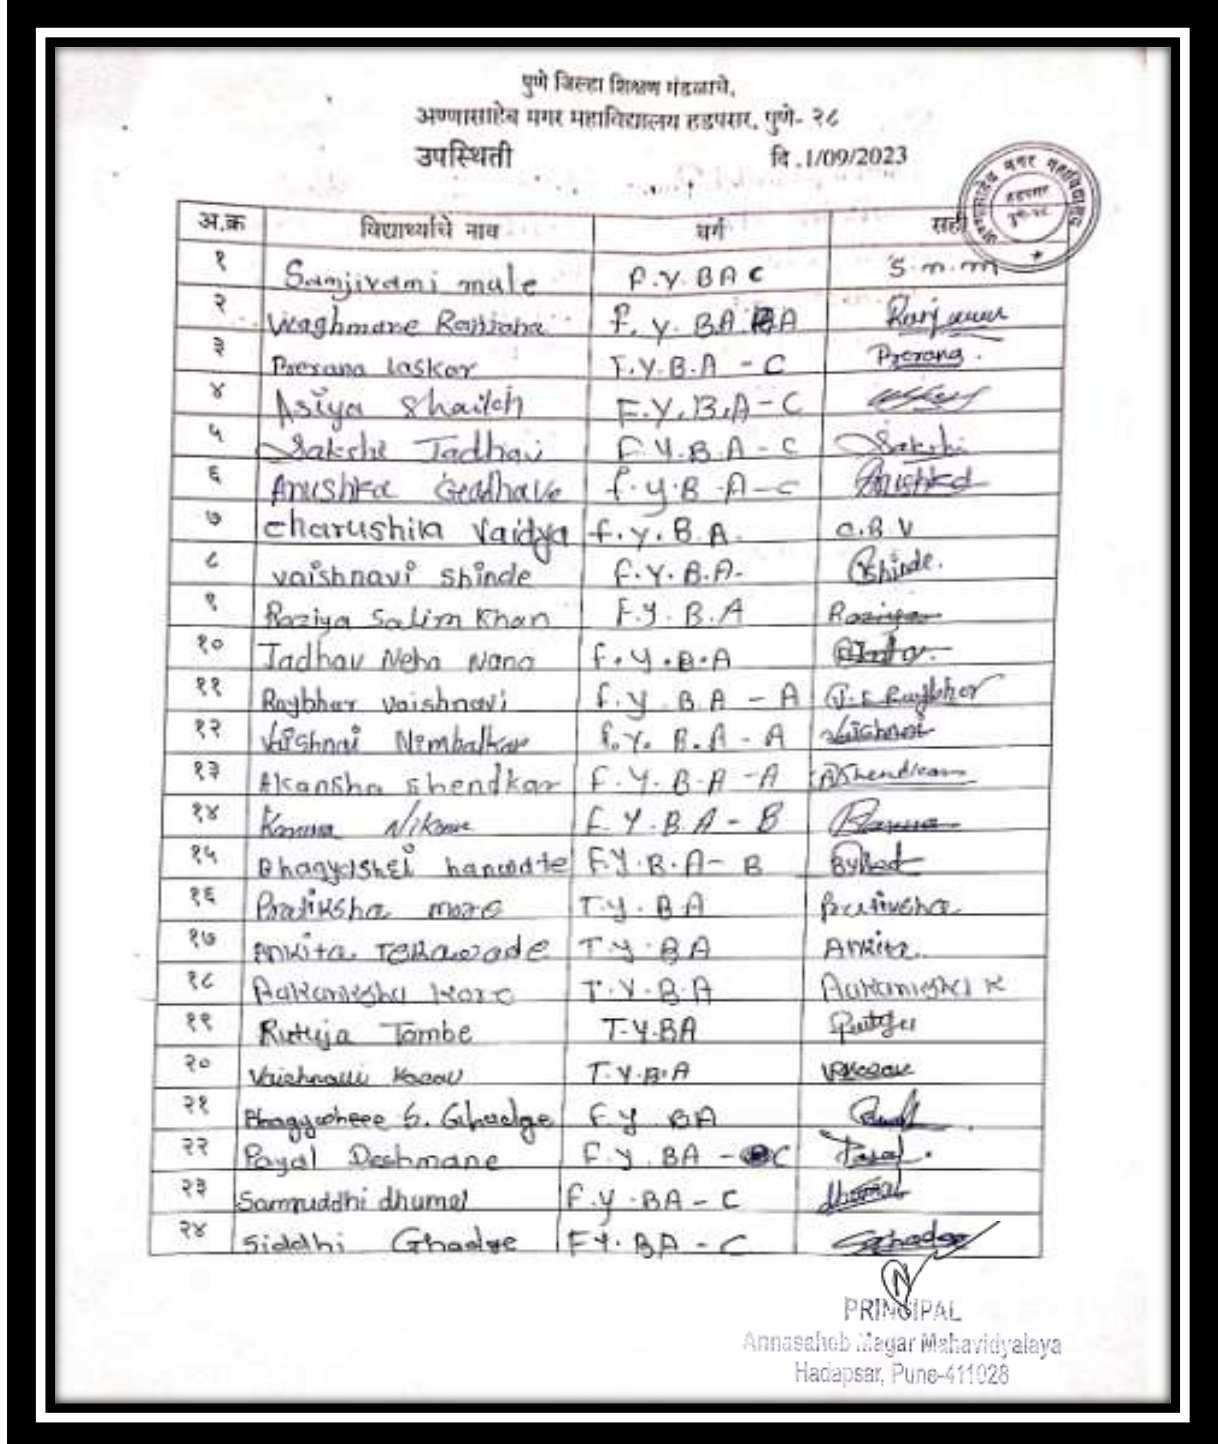 पुणे जिल्हा शिक्षण मंडळाचे,
अण्णासाहेब मगर महाविद्यालय हडपसर, पुणे- २८
उपस्थिती दि .1/09/2023
अ.क्र विद्यार्थ्याचे नाव वर्ग सही
१ Sanjivani mule F.Y.BA C S.m.m
२ Waghmare F.Y.BA
३ Prerana Laskar F.Y.B.A - C Prerana.
४ Asiya Shaikh F.Y.B.A-C
५ Sakshi Jadhav F.Y.B.A - C Sakshi
६ Anushka Gadhave F.Y.B.A-C Anushka
७ charushila Vaidya F.Y.B.A. C.B.V
८ vaishnavi Shinde F.Y.B.A- Shinde.
९ Raziya Salim Khan F.Y.B.A Raziya
१० Jadhav Neha Nana F.Y.B.A
११ Raybhar vaishnavi F.Y.B.A - A Raybhar
१२ Nimbalkar F.Y.B.A - A
१३ Akansha shendkar F.Y.B.A - A AShendkar
१४ F.Y.B.A - B
१५ F.Y.B.A- B
१६ Pratiksha more T.Y.BA Pratiksha
१७ Ankita T.Y.BA Ankita.
१८ T.Y.B.A
१९ Rutuja Tombe T.Y.BA Rutuja
२० T.Y.B.A
२१ S. Ghadge F.Y BA
२२ Payal Deshmane F.Y.BA - C Payal.
२३ Samruddhi dhumal F.Y.BA - C
२४ Siddhi Ghadge F.Y.BA - C Ghadge
PRINCIPAL
Annasaheb Magar Mahavidyalaya
Hadapsar, Pune-411028